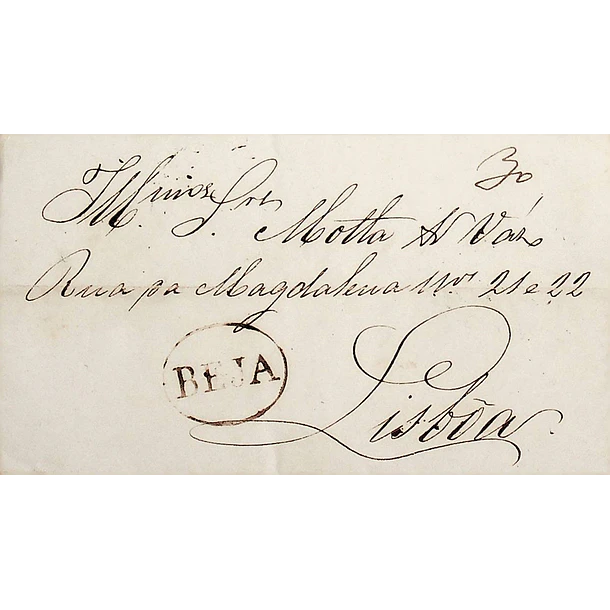 30
Illmos. Snrs.
Motta & Váz
Rua da Magdalena Nos 21 e 22
BEJA
Lisbôa.